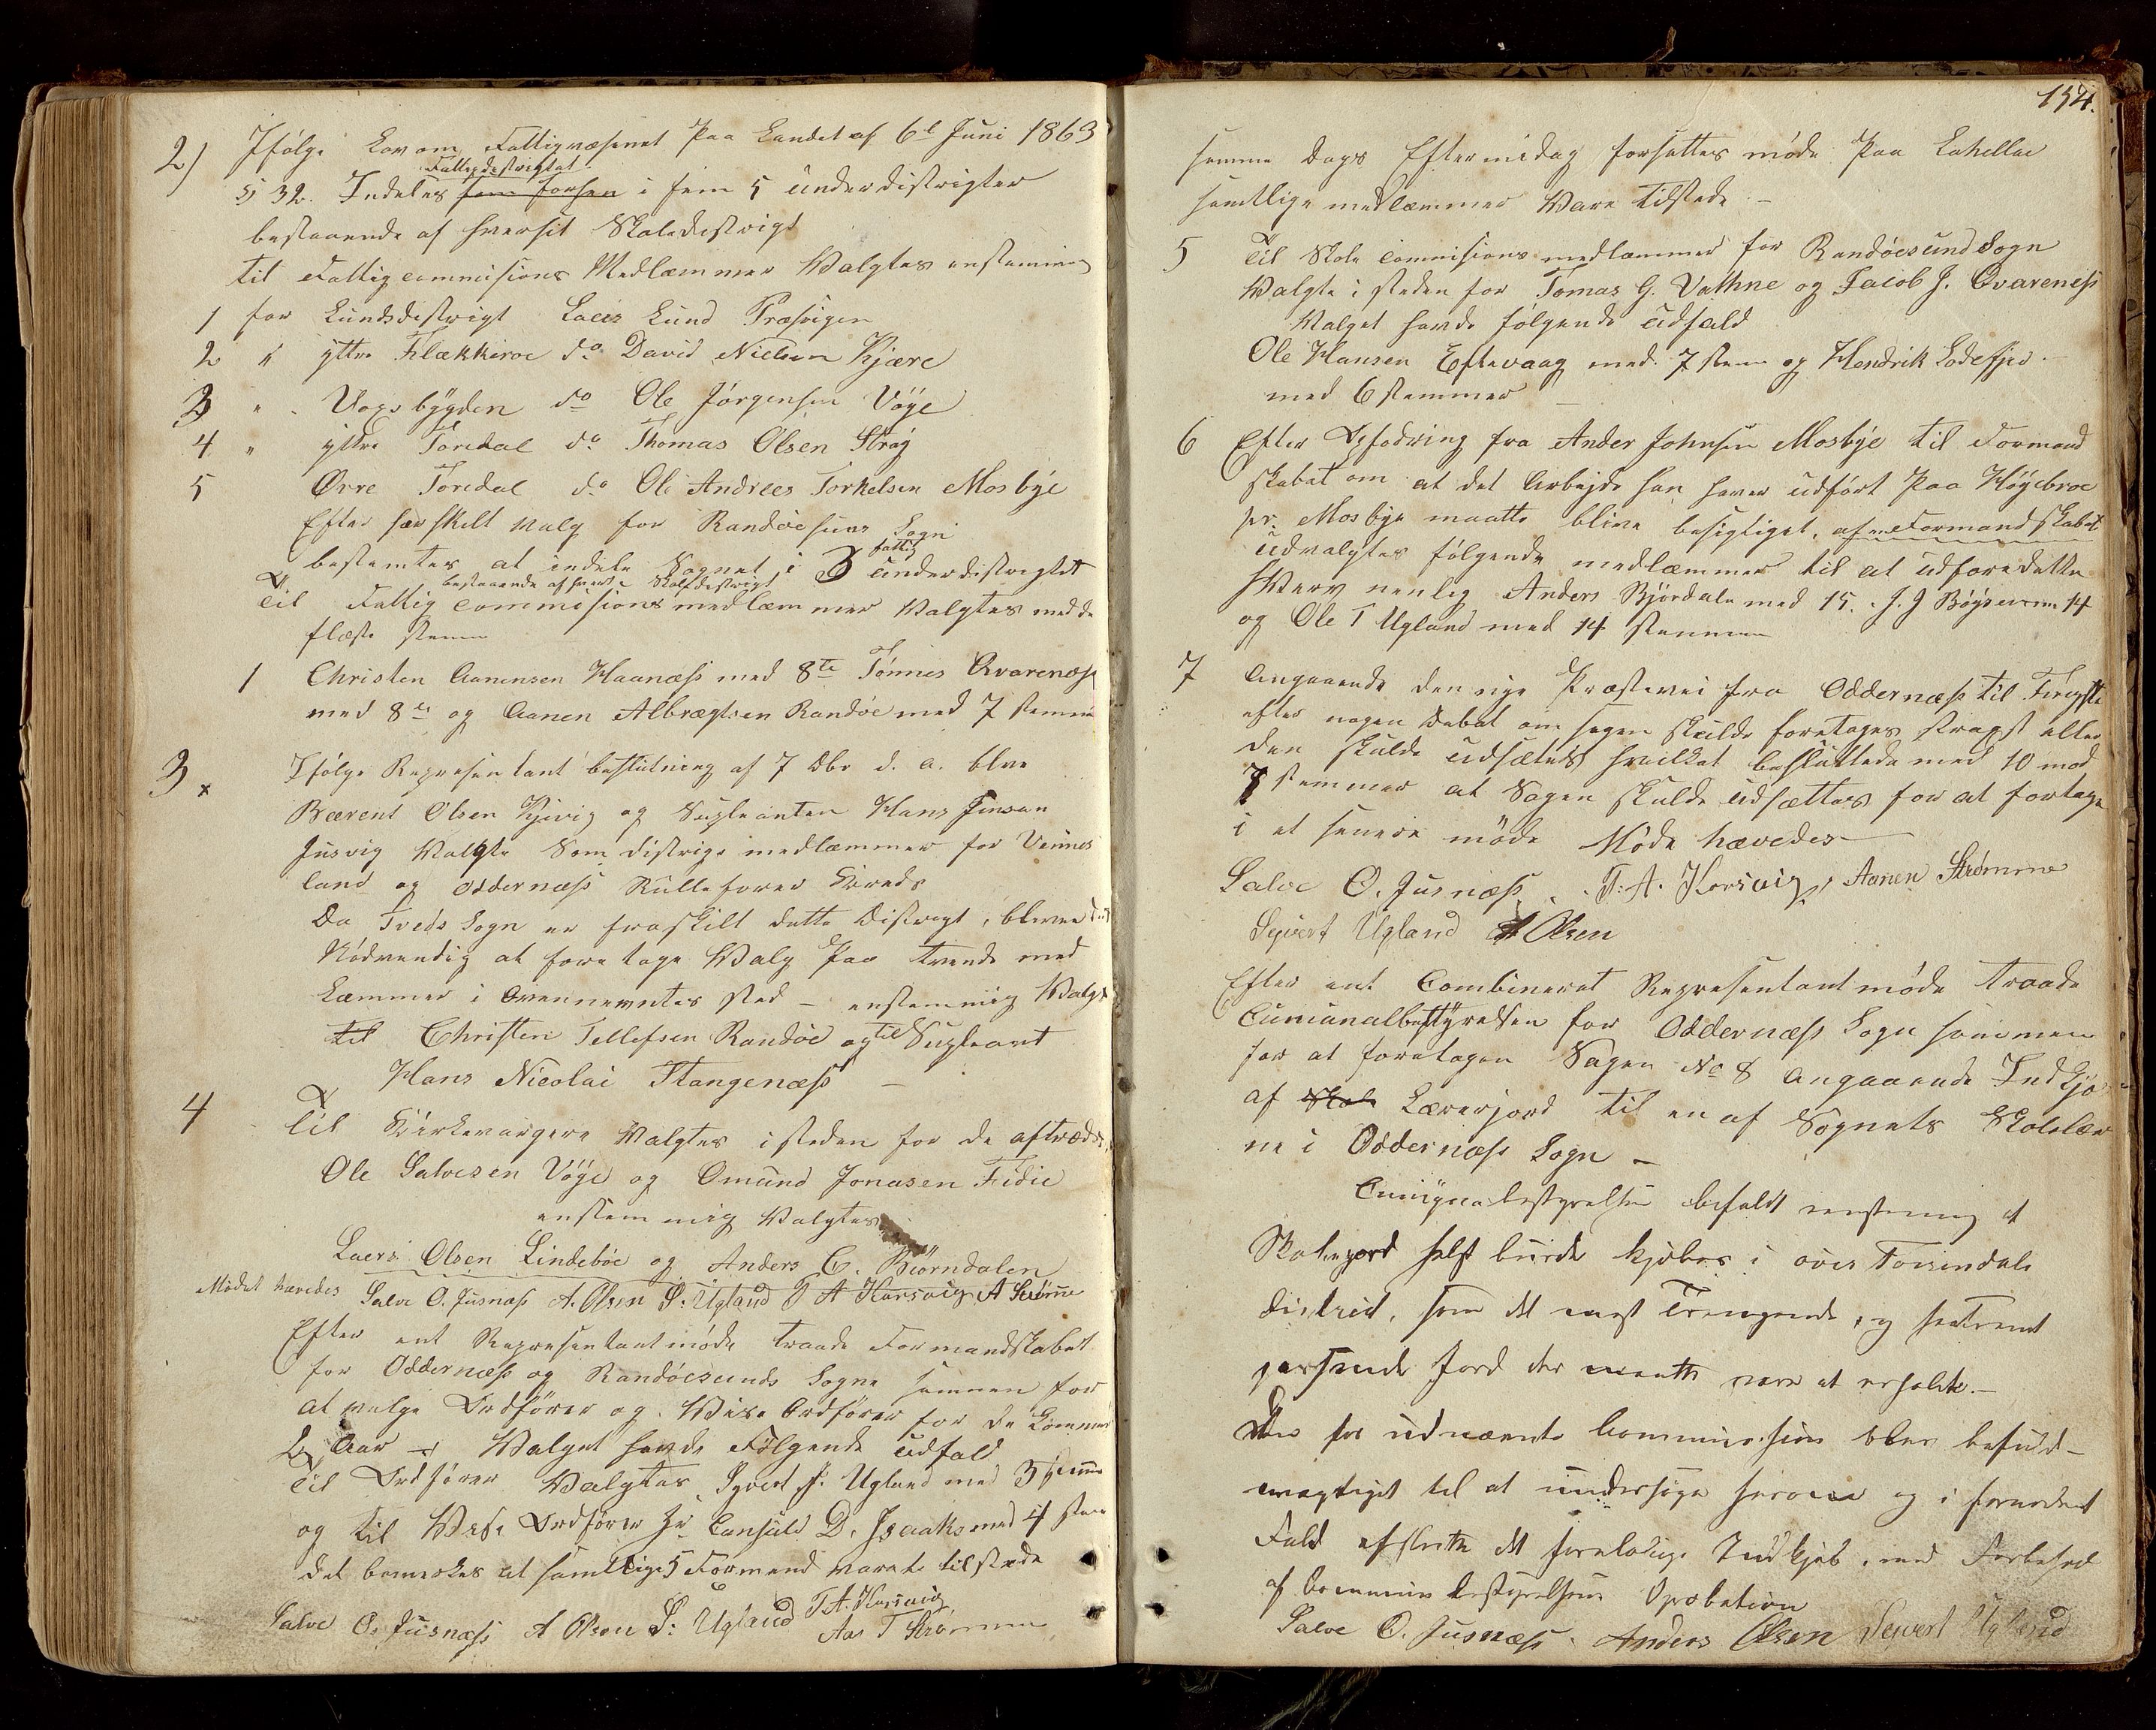 2) Ifølge Lov om Fattigvæsenet Paa Landet af 6t Juni 1863
Fattigdestrigtet
§ 32. Indeles som Forhen i fem 5 underdistrigter
bestaaende af hversit Skoledistrigt
til Fattigcommisions Medlæmmer Walgtes enstemmig
1 for Lundsdistrigt Laers Lund Præstigen
2 " yttre Flækkeroe do David Nielsen Kjære
3 " Vogsbygden do Ole Jørgensen Vøye
4 " yttre Toredal do Thomas Olsen Straÿ
5 Øvre Toredal do Ole Andrees Torkelsen Mosbye
Efter særskilt Valg for Randøesuns Sogn
bestemtes at indele Sognet i 3 fattig underdistrigter
bestaaende af hvert Skoledistrigt
Til Fattig Commisions medlæmmer Walgtes med de
fleste stemmer
1 Christen Aanensen Haanæss med 8te Tønnes Qvarenæss
med 8te og Aanen Albrægtsen Randøe med 7 stemmer
3 x Ifølge Representant beslutning af 7 Dbr d. a. blev
Bærent Olsen Kjivig og Supleanten Hans Jensen
Jusvig Walgte Som distrigs medlæmmer for Vennes
land og Oddernæss Rulleforer Kreds
Da Tveds Sogn er fraskilt dette Distrigt, bleven det
Nødvendig at foretage Walg Paa tvende med
læmmer i Ovennevntes sted – enstemmig Walgt
til Christen Tellefsen Randøe og til Supleant
Hans Nicolai Stangenæss –
4 Til Kirkeværgere Walgtes i steden for de aftrædde
Ole Salvesen Vöye og Omund Jonasen Fidie
enstemmig Walgtes
Laers Olsen Lindeböe og Anders C. Biörndalen
Mødet hævedes Salve O. Jusnæss A. Olsen S: Ugland T A Korsvig A Strømme
Efter ent Representantmöde traade Formandskabet
for Oddernæss og Randöesunds Sogne sammen for
at velge Ordfører og Wise Ordfører for de kommende
2 Aar – Walget havde Følgende udfald
Til Ordfører Walgtes Syvert S: Ugland med 3 stemmer
og til Wise Ordfører Hr Consuld D. Isaaks med 4 stem
Det bemerkes at samtlige 5 Formænd vare tilstede
Salve O. Jusnæss A Olsen S: Ugland T.A. Korsvig
Aa T Strømme
154.
samme Dags Eftermidag forsattes möde Paa Lahellae
samtlige medlæmmer Ware tilstede –
5 Til Skole Commisions medlæmmer for Randöesund Sogn
Walgte i steden for Tomas G. Vathne og Jacob J. Qvareness
Walget havde følgende udfald
Ole Hansen Eftevaag med 7 stem og Hendrik Lodefjed
med 6 stemmer
6 Efter Opfodring fra Ander Johnsen Mosbye til Formand
skabet om at det Arbejde han haver udfört Paa Höÿebroe
pr. Mosbye maatte blive besigtiget, af Formandskabet
udvalgtes følgende medlæmmer til at udføre dette
Hverv nemlig Anders Björdale med 15. J. J Böÿsen 14
og Ole T Ugland med 14 stemmer
7 Angaaende den nye Præstevei fra Oddernæss til
efter nogen Debat om sagen skulde foretages strags eller
den skulde udsættes hvilket besluttede med 10 mod
7 stemmer at Sagen skulde udsættes for at fortage
i et senere möde Möde hævedes
Salve O. Jusnæss. T. A. Korsvig, Aanen Strømme
Syvert Ugland A Olsen
Efter ent Combineret Representantmöde traade
Cumunalbestyrelsen for Oddernæss Sogn sammen
for at foretagen Sagen No 8 angaaende Indkjø
af Skole Lærerjord til en af Sognets Skolelær
ne i Oddernæss Sogn –
bestyrelsen enstemmig at
Skolejord helst burde kjøbes i øvre Torrendals
District, som det mest Trengende, og
passende Jord der var at erholde. –
Den før udnævnte Commission blev befuld-
mægtiget til at undersøge herom og i fornødent
Fald afslutte det foreløbige Indkjøb, med Forbehold
af Commune bestyrelsens Aprobation
Salve O. Jusnæss. Anders Olsen Seivert Ugland